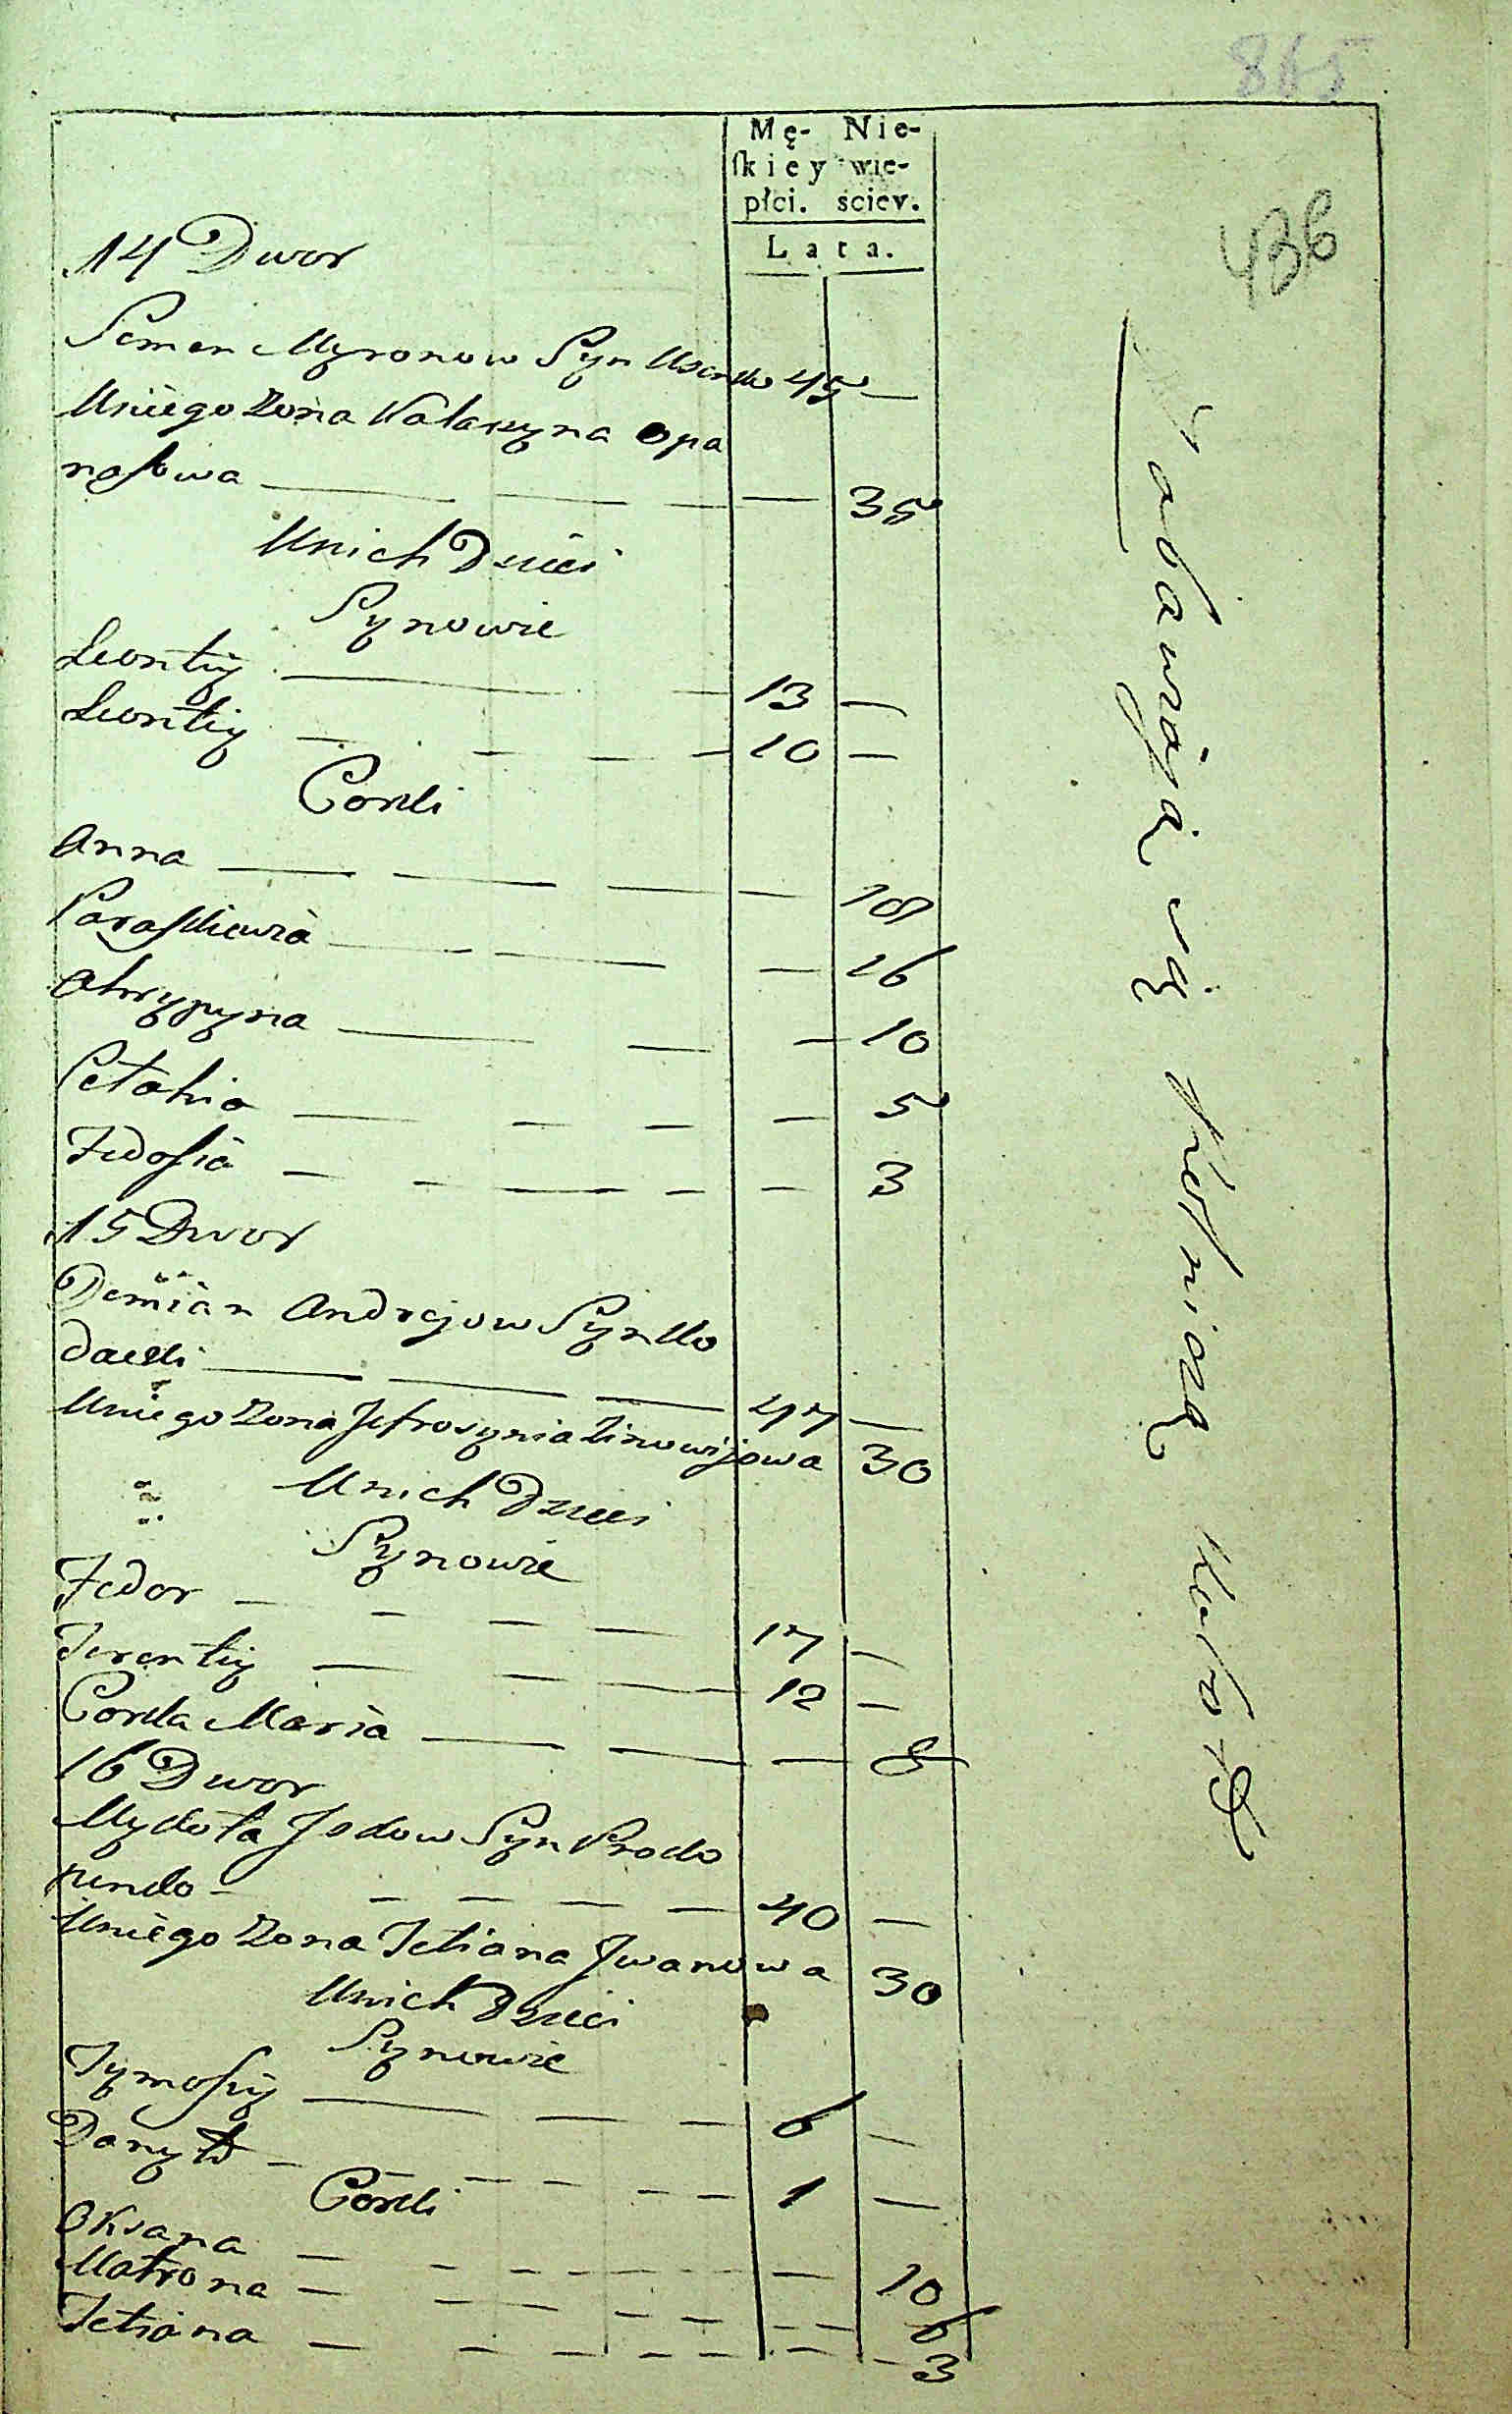 865
Mę- Nie-
ſkiey wie-
płci. sciey.
Lata.
436
14 Dwor
Semen Myronow Syn 45 —
Uniego Zona Katarzyna Opa
nasowa — — — — 35
Unich Dzieci
Synowie
Leontiy — — 13 —
Leontiy — — — — 10 —
Corki
Anna — — — — 18
Paraskiewia — — — — 16
Ahrypyna — — — 10
Petahia — — — — 5
Fedosia — — — — — 3
15 Dwor
Demian Andrejow Syn Ko
— — — 47 —
Uniego Zona Jefrosynia Zinowijowa 30
Unich Dzieci
Synowie
Fedor — — — — 17 —
Terentiy — — — 12 —
Corka Maria — — — 8
16 Dwor
Mykota Syn Proko
penko — — — — — 40 —
Uniego Zona Tetiana Jwanowa 30
Unich Dzieci
Synowie
Tymofiy — — — 6 —
Danyło — — — — — — 1 —
Corki
Oksana — — — — — — — 10
Matrona — — — — — — — 6
Tetiana — — — — — — — 3
się